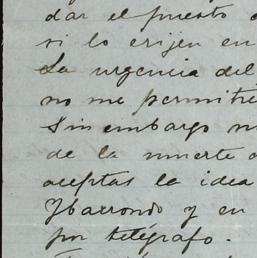 dar el puesto
si lo erijen en
La urgencia del
no me permitie
Sin embargo
de la muerte
aceptas la idea
Ybarrondo y en
por telégrafo.